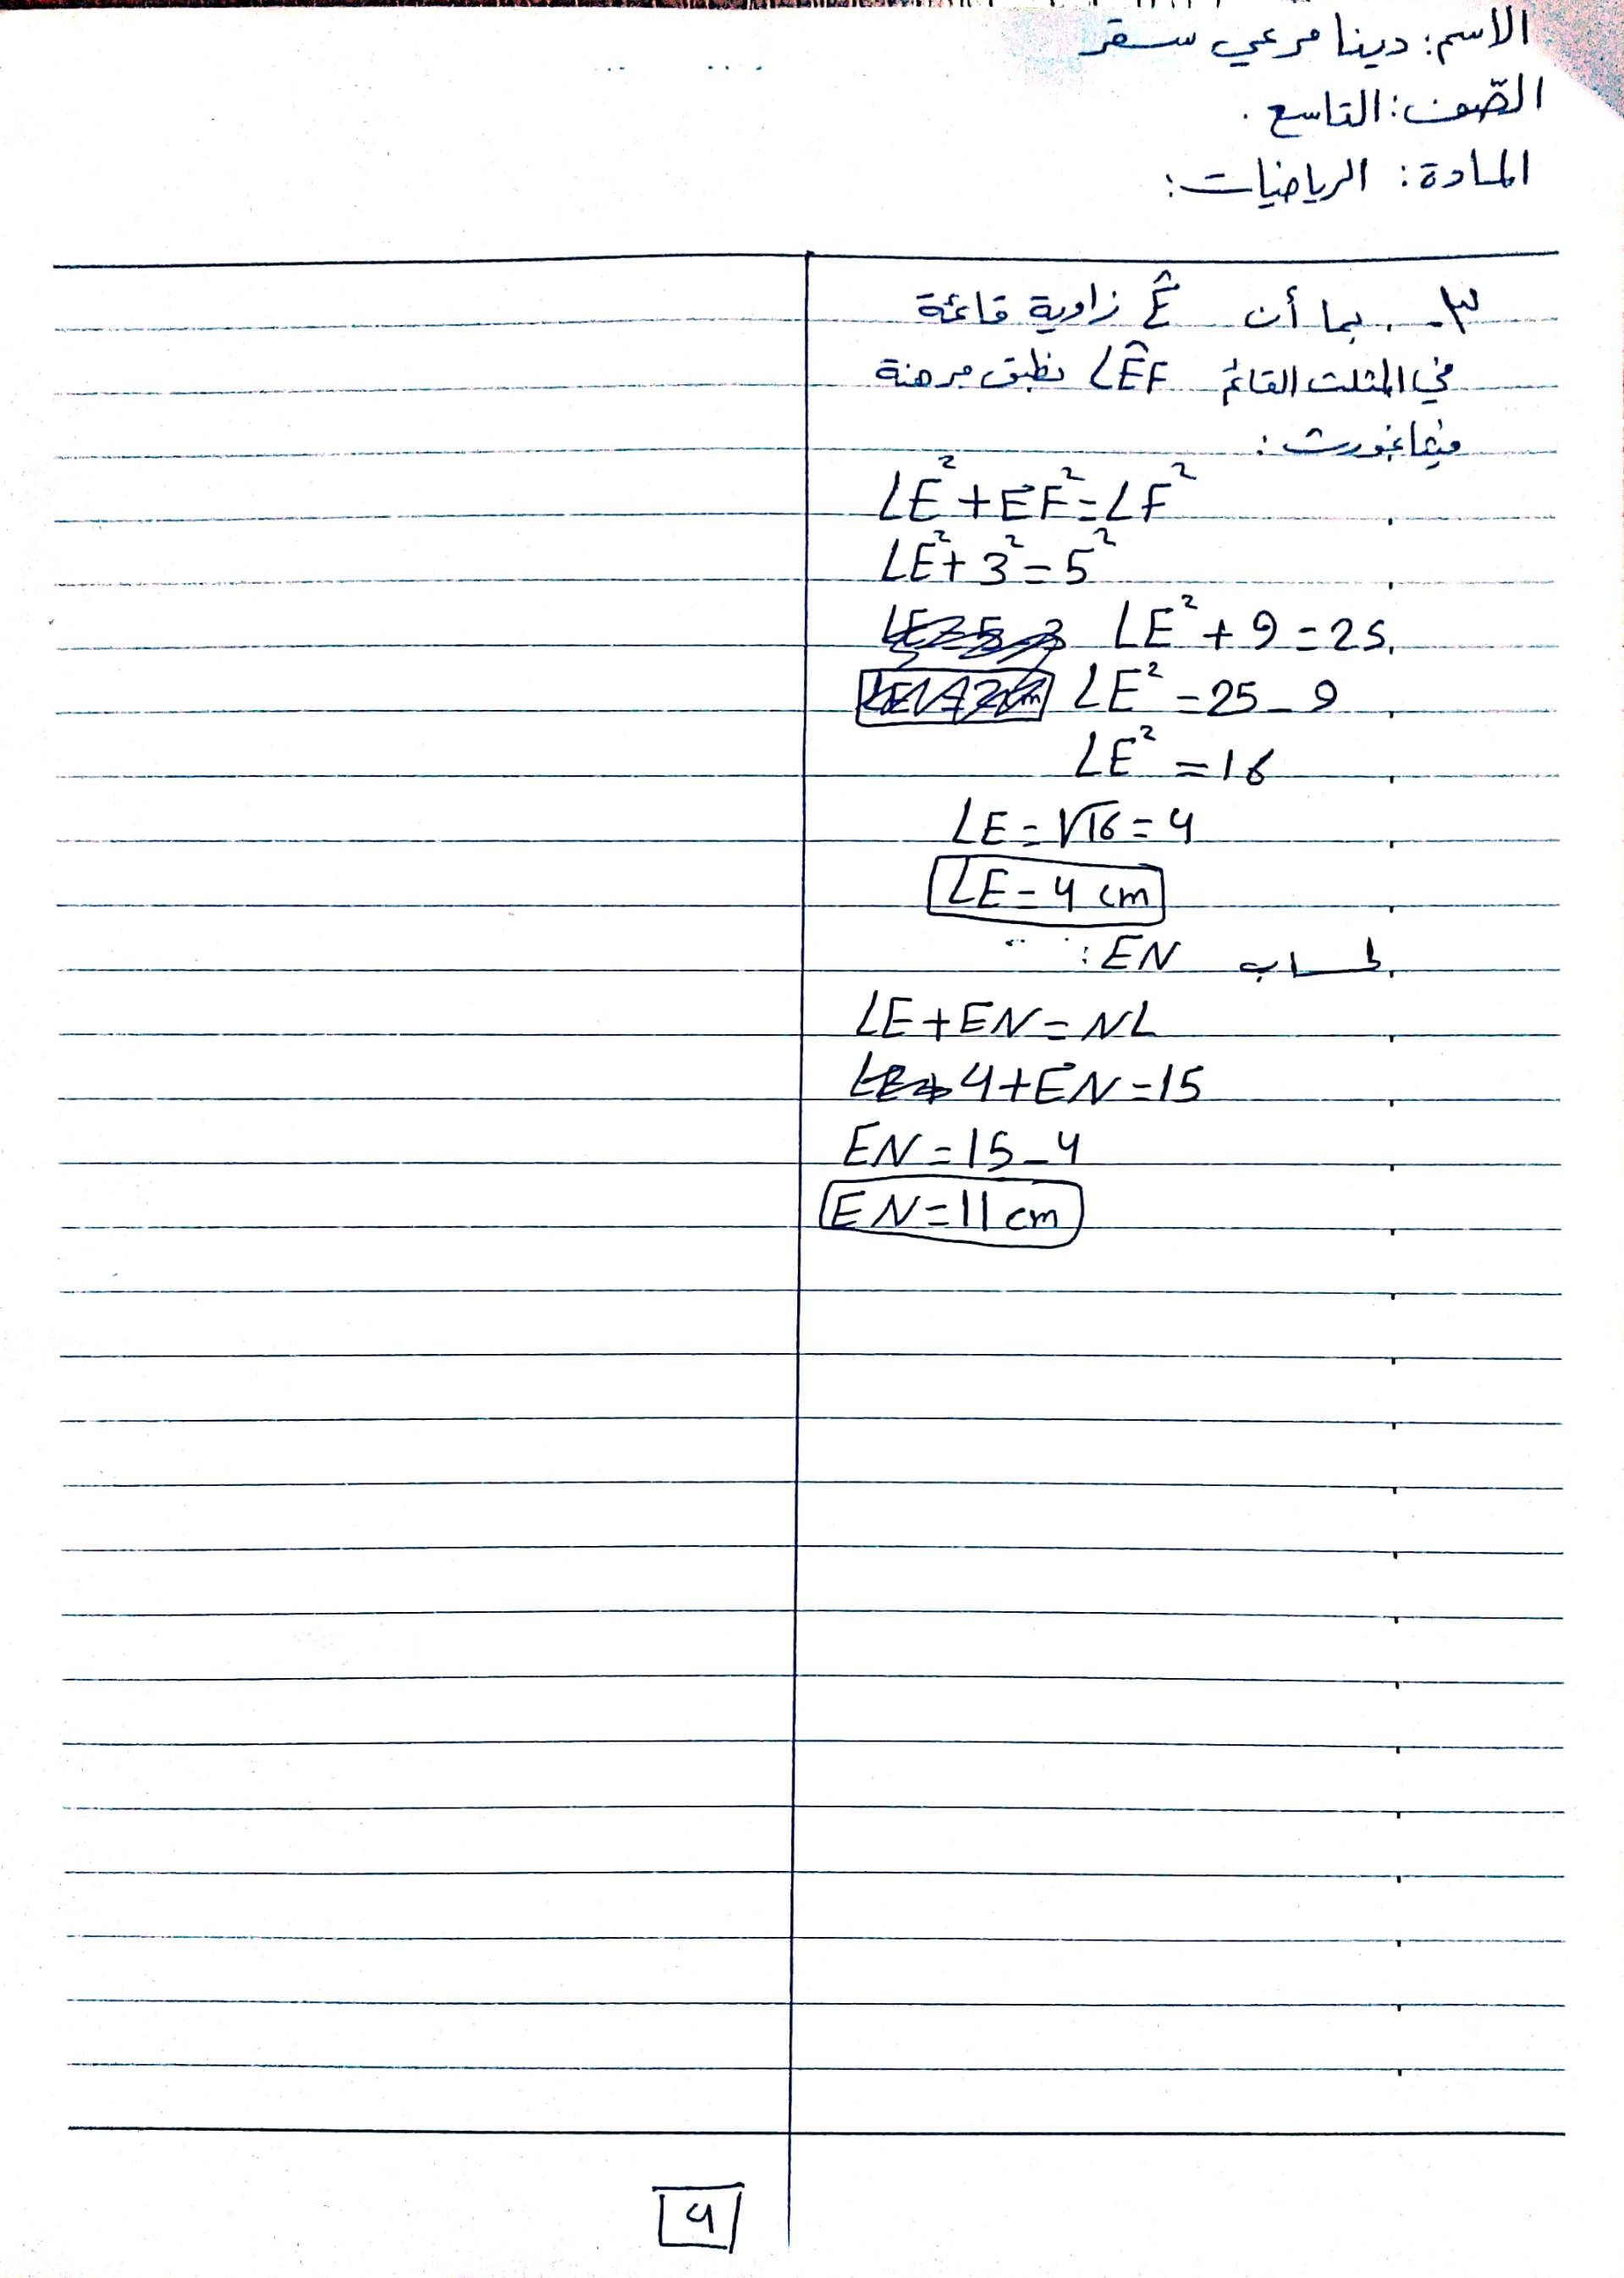 الاسم: دينا مرعي سقر
الصّف: التاسع .
المادة: الرياضيات:
٣- بما أن Ê زاوية قائمة
في المثلث القائم LÊF نطبق مبرهنة
فيثاغورث :
LE²+EF²=LF²
LE²+3²=5²
LE²+9=25
LE²=25-9
LE²=16
LE=√16=4
LE=4 cm
لحساب EN :
LE+EN=NL
4+EN=15
EN=15-4
EN=11 cm
4